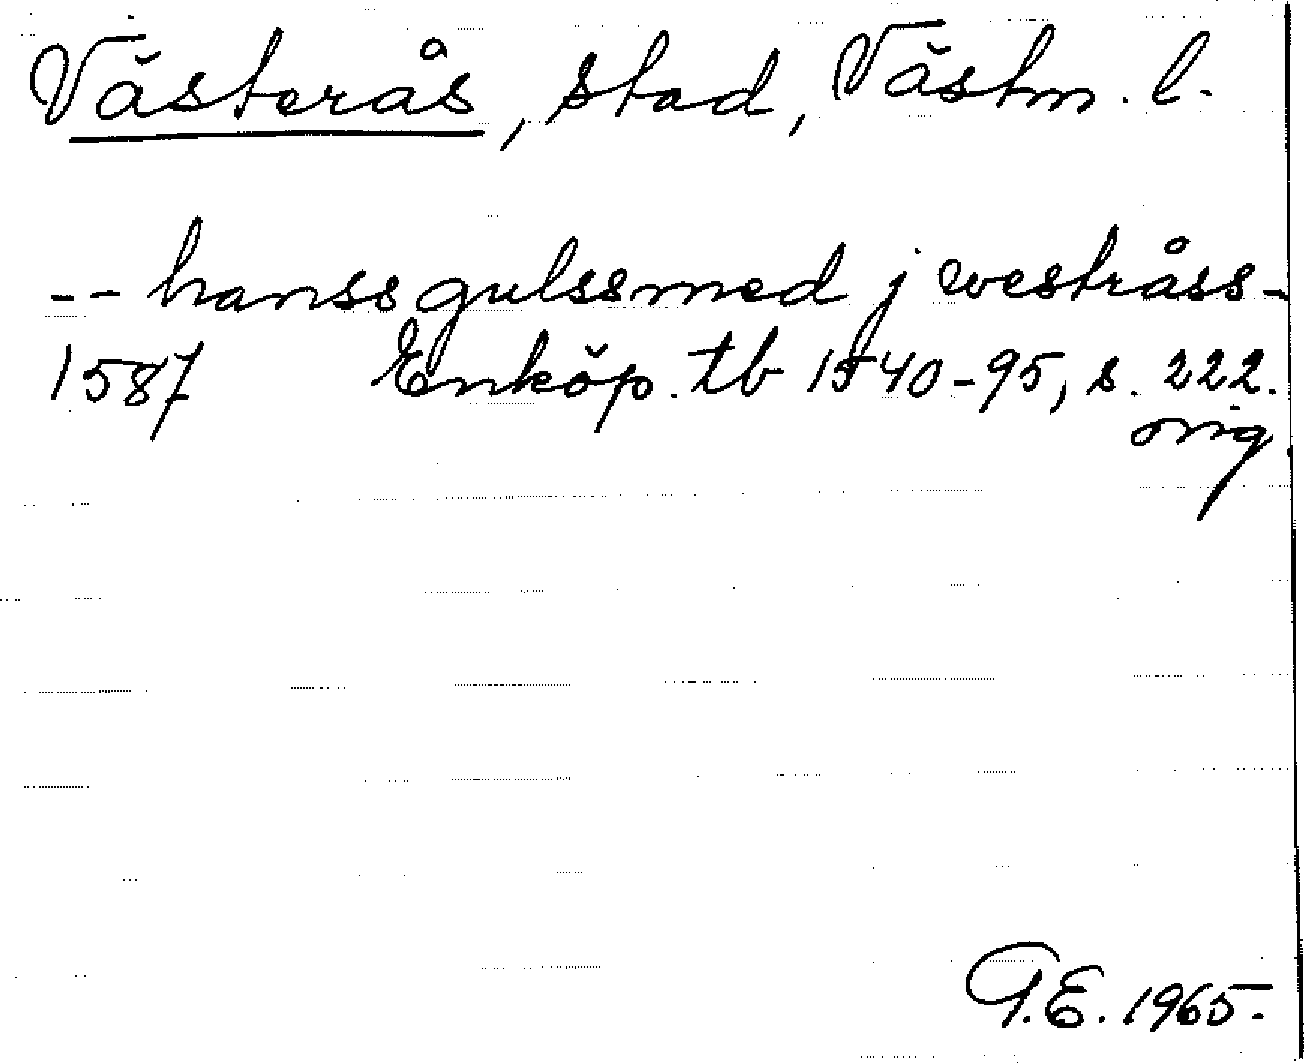 Västerås, stad, Västm. l.
-- hanss gulssmed j westråss -
1587 Enköp. tb 1540-95, s. 222.
orig
G.E. 1965.